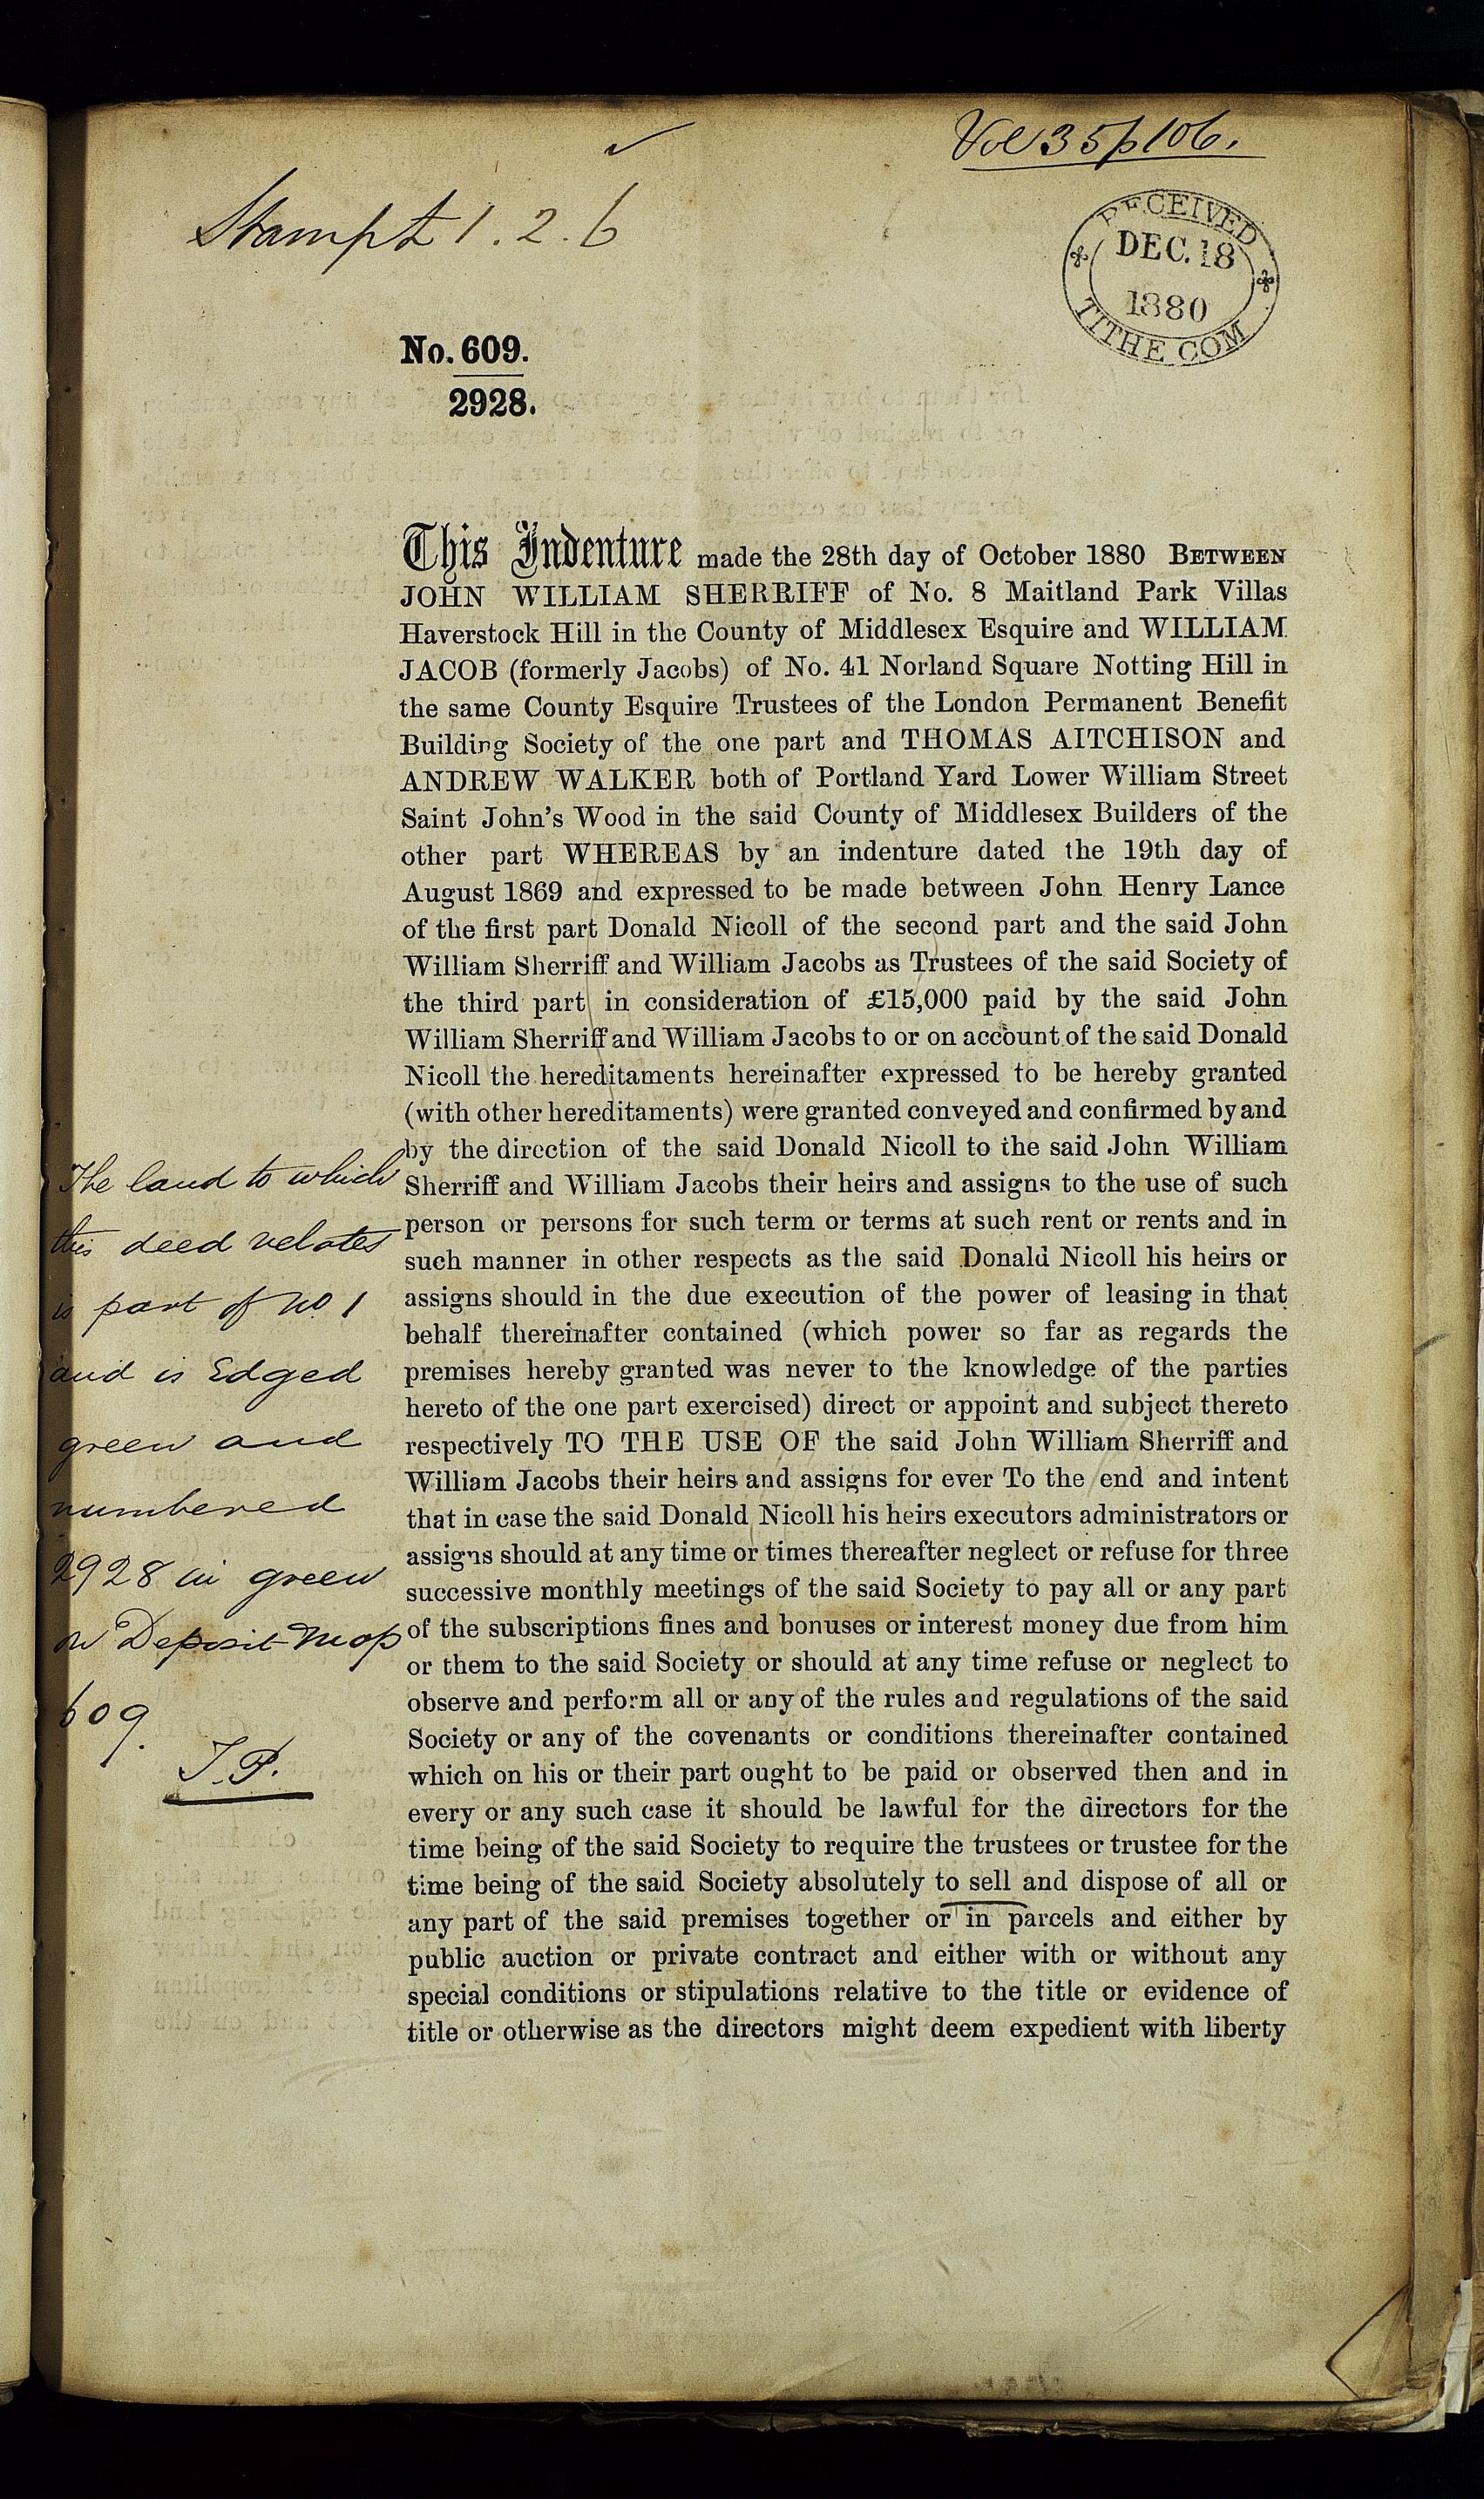 Vol 35 p 106.
Stampt 1.2.6
RECEIVED
DEC. 18
1880
TITHE COM
No. 609.
2928.
This Indenture made the 28th day of October 1880 BETWEEN
JOHN WILLIAM SHERRIFF of No. 8 Maitland Park Villas
Haverstock Hill in the County of Middlesex Esquire and WILLIAM
JACOB (formerly Jacobs) of No. 41 Norland Square Notting Hill in
the same County Esquire Trustees of the London Permanent Benefit
Building Society of the one part and THOMAS AITCHISON and
ANDREW WALKER both of Portland Yard Lower William Street
Saint John's Wood in the said County of Middlesex Builders of the
other part WHEREAS by an indenture dated the 19th day of
August 1869 and expressed to be made between John Henry Lance
of the first part Donald Nicoll of the second part and the said John
William Sherriff and William Jacobs as Trustees of the said Society of
the third part in consideration of £15,000 paid by the said John
William Sherriff and William Jacobs to or on account of the said Donald
Nicoll the hereditaments hereinafter expressed to be hereby granted
(with other hereditaments) were granted conveyed and confirmed by and
by the direction of the said Donald Nicoll to the said John William
Sherriff and William Jacobs their heirs and assigns to the use of such
person or persons for such term or terms at such rent or rents and in
such manner in other respects as the said Donald Nicoll his heirs or
assigns should in the due execution of the power of leasing in that
behalf thereinafter contained (which power so far as regards the
premises hereby granted was never to the knowledge of the parties
hereto of the one part exercised) direct or appoint and subject thereto
respectively TO THE USE OF the said John William Sherriff and
William Jacobs their heirs and assigns for ever To the end and intent
that in case the said Donald Nicoll his heirs executors administrators or
assigns should at any time or times thereafter neglect or refuse for three
successive monthly meetings of the said Society to pay all or any part
of the subscriptions fines and bonuses or interest money due from him
or them to the said Society or should at any time refuse or neglect to
observe and perform all or any of the rules and regulations of the said
Society or any of the covenants or conditions thereinafter contained
which on his or their part ought to be paid or observed then and in
every or any such case it should be lawful for the directors for the
time being of the said Society to require the trustees or trustee for the
time being of the said Society absolutely to sell and dispose of all or
any part of the said premises together or in parcels and either by
public auction or private contract and either with or without any
special conditions or stipulations relative to the title or evidence of
title or otherwise as the directors might deem expedient with liberty
The land to which
this deed relates
is part of No. 1
and is Edged
green and
numbered
2928 in green
on Deposit Map
609.
T.P.